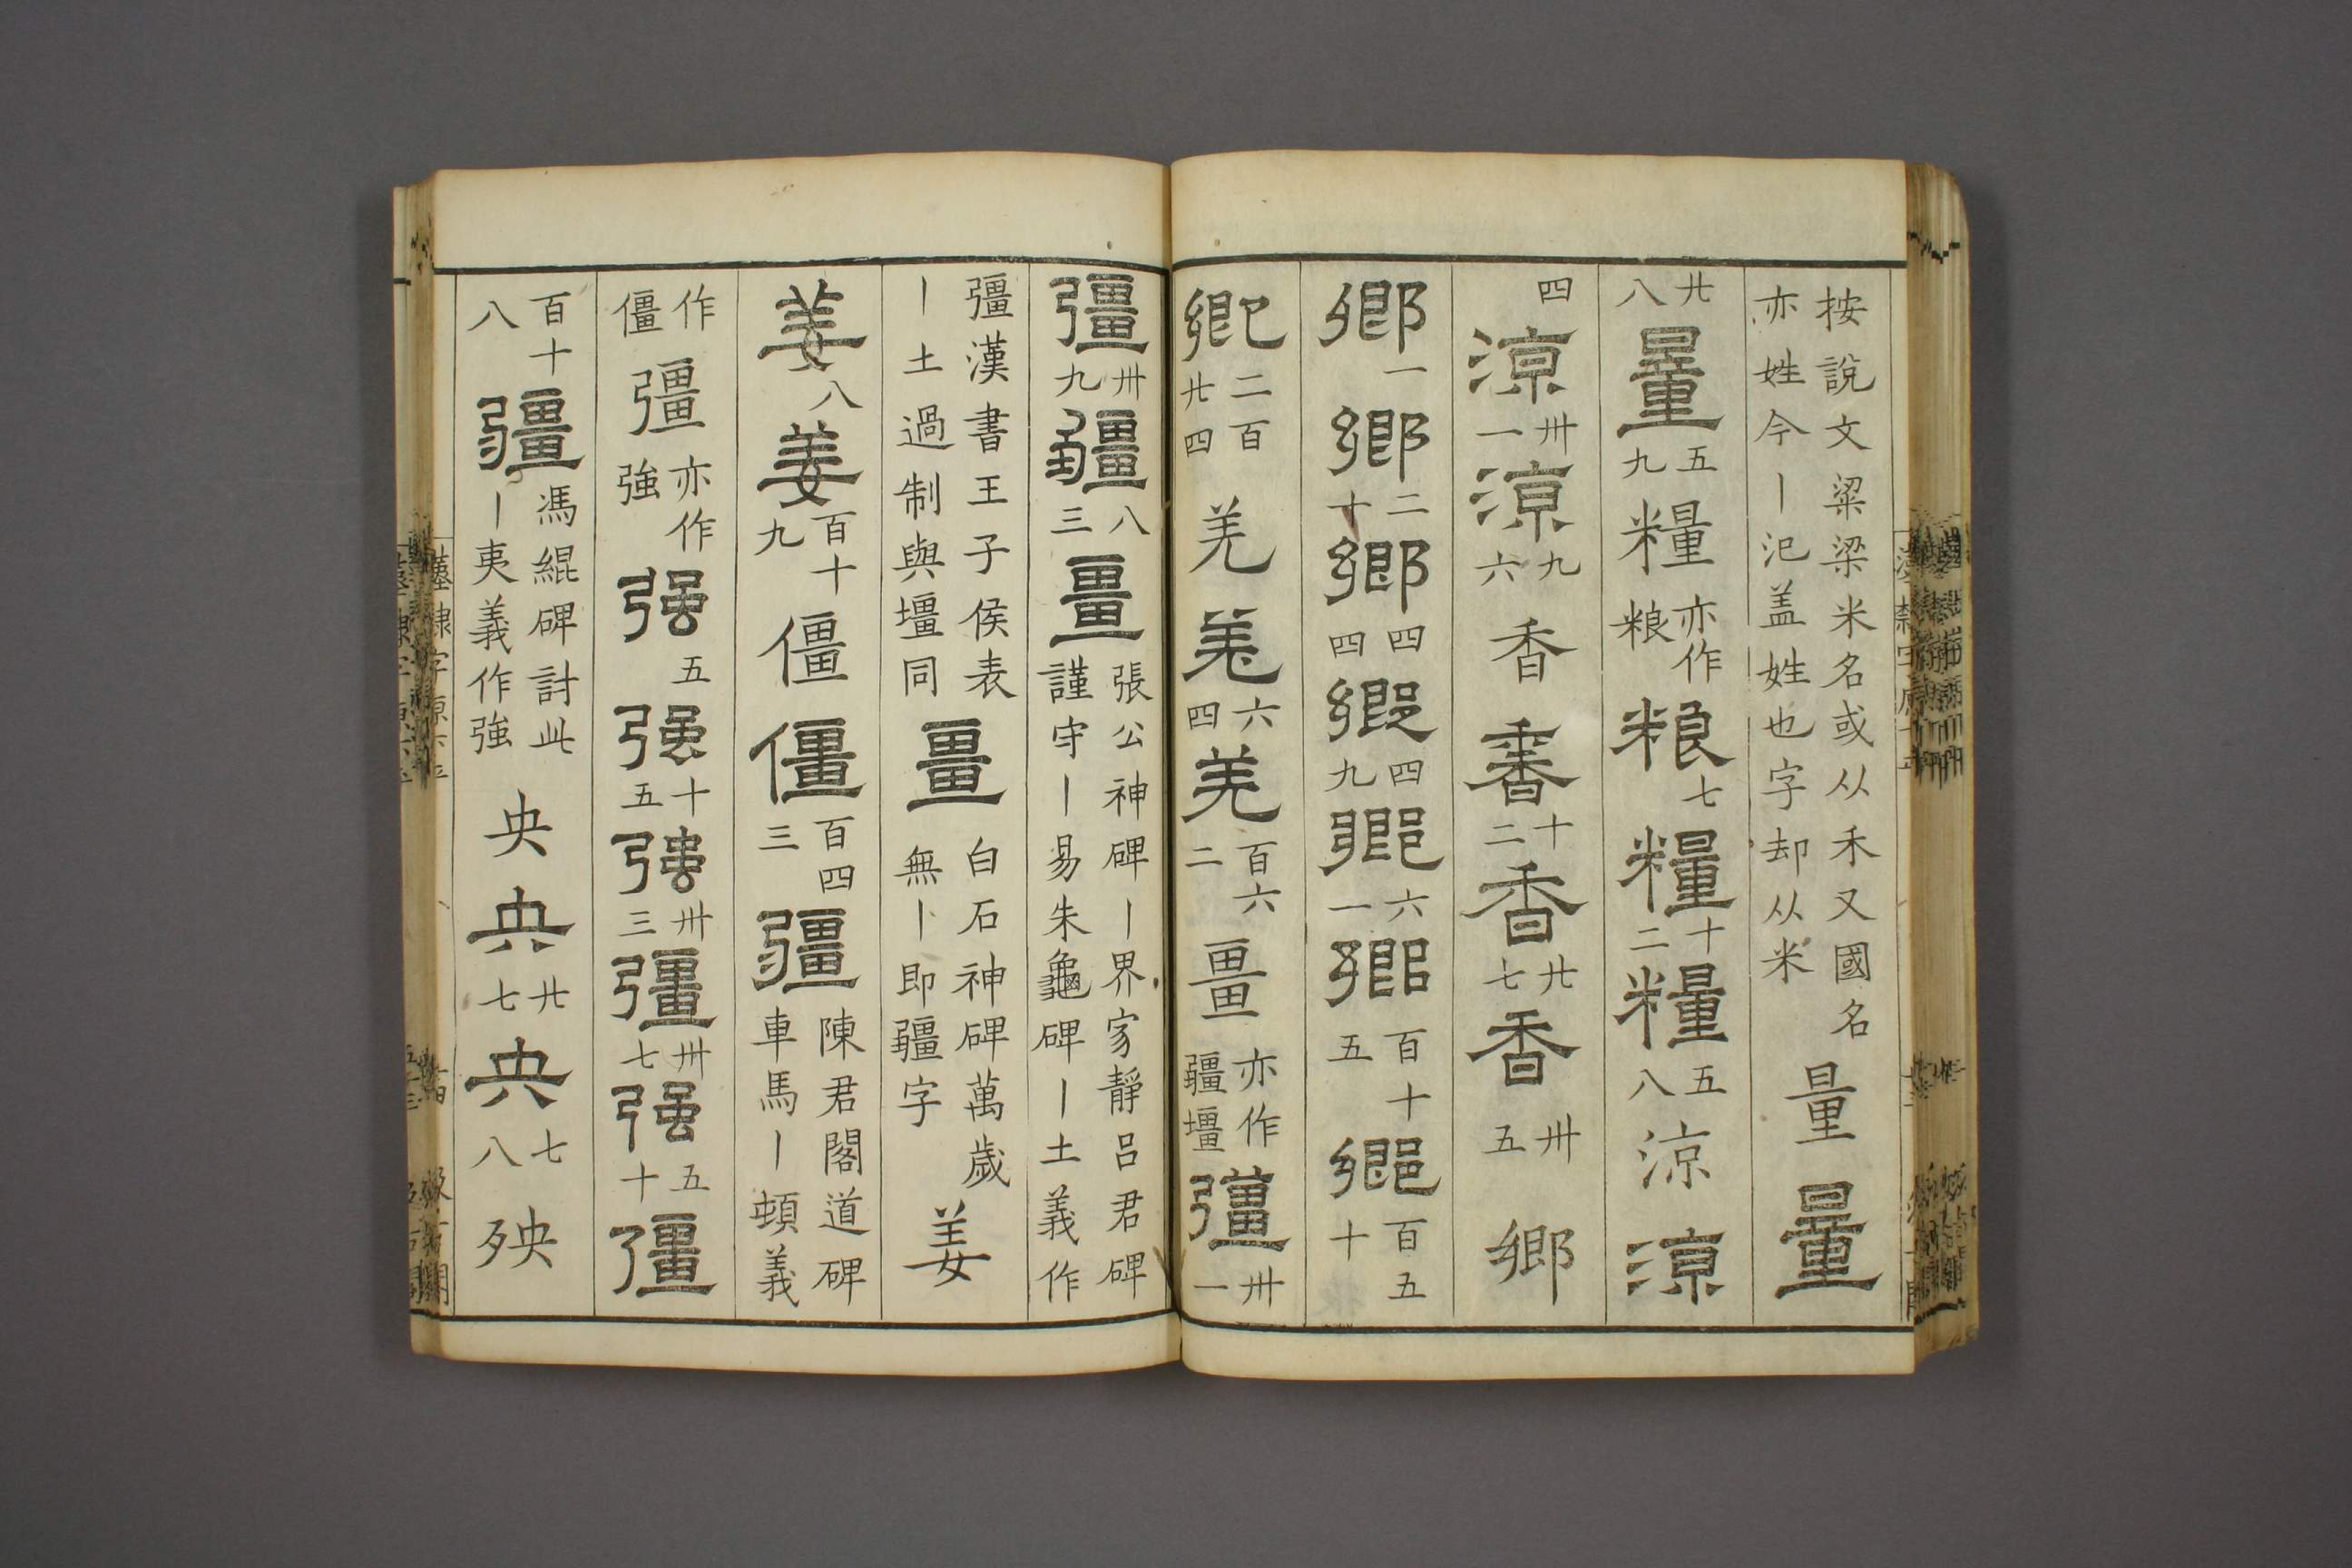 按說文粱梁米名或从禾又國名
亦姓今丨氾盖姓也字却从米
量 量
廿八 量 五九 糧 亦作粮 粮 七 糧 十二 糧 五八 涼 涼
四 涼 卅一 涼 九六 香 香 十二 香 廿七 香 卅五 鄉
鄉 一 鄉 二十 鄉 四四 鄉 四九 鄉 六一 鄉 百十五 鄉 百五十
鄉 二百廿四 羌 羌 六四 羌 百六二 畺 亦作疆壃 彊 卅一
彊 卅九 疆 八三 畺 張公神碑丨界家靜呂君碑
謹守丨易朱龜碑丨土義作
彊漢書王子侯表
丨土過制與壃同
畺 白石神碑萬歲
無丨即疆字
姜
姜 八 姜 百十九 僵 僵 百四三 疆 陳君閣道碑
車馬丨頓義
作僵 彊 亦作強 强 五 强 十五 强 卅三 彊 卅七 强 五十 彊
百十八 疆 馮緄碑討此
丨夷義作強
央 央 廿七 央 七八 殃